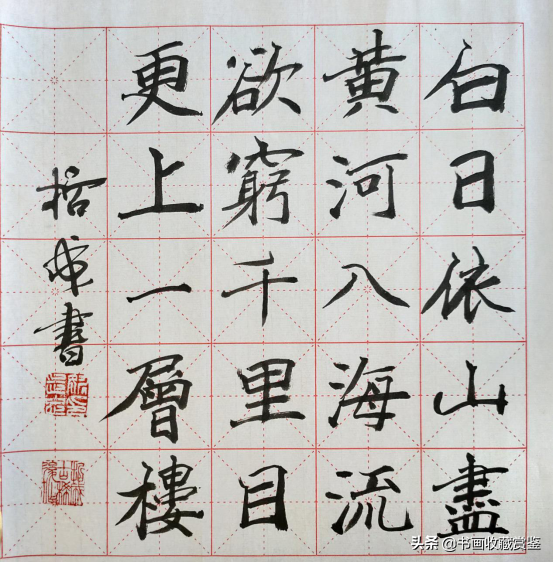 白日依山盡
黄河入海流
欲窮千里目
更上一層樓
書
头条 @书画收藏赏鉴